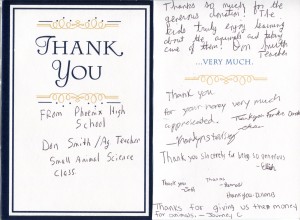 THANK
YOU
From Phoenix High
School
Don Smith/Ag Teacher
Small Animal Science
Class
Thanks so much for the
generous donation! The
kids truly enjoy learning
about the animals and taking
care of them! Don Smith
Teacher
...VERY MUCH.
Thank you
for your money very much
appreciated.
Thank you for the Donation
Thank you sincerely for being so generous
Thank you
Thanks
Thanks for giving us the money
for animals. - Journey C